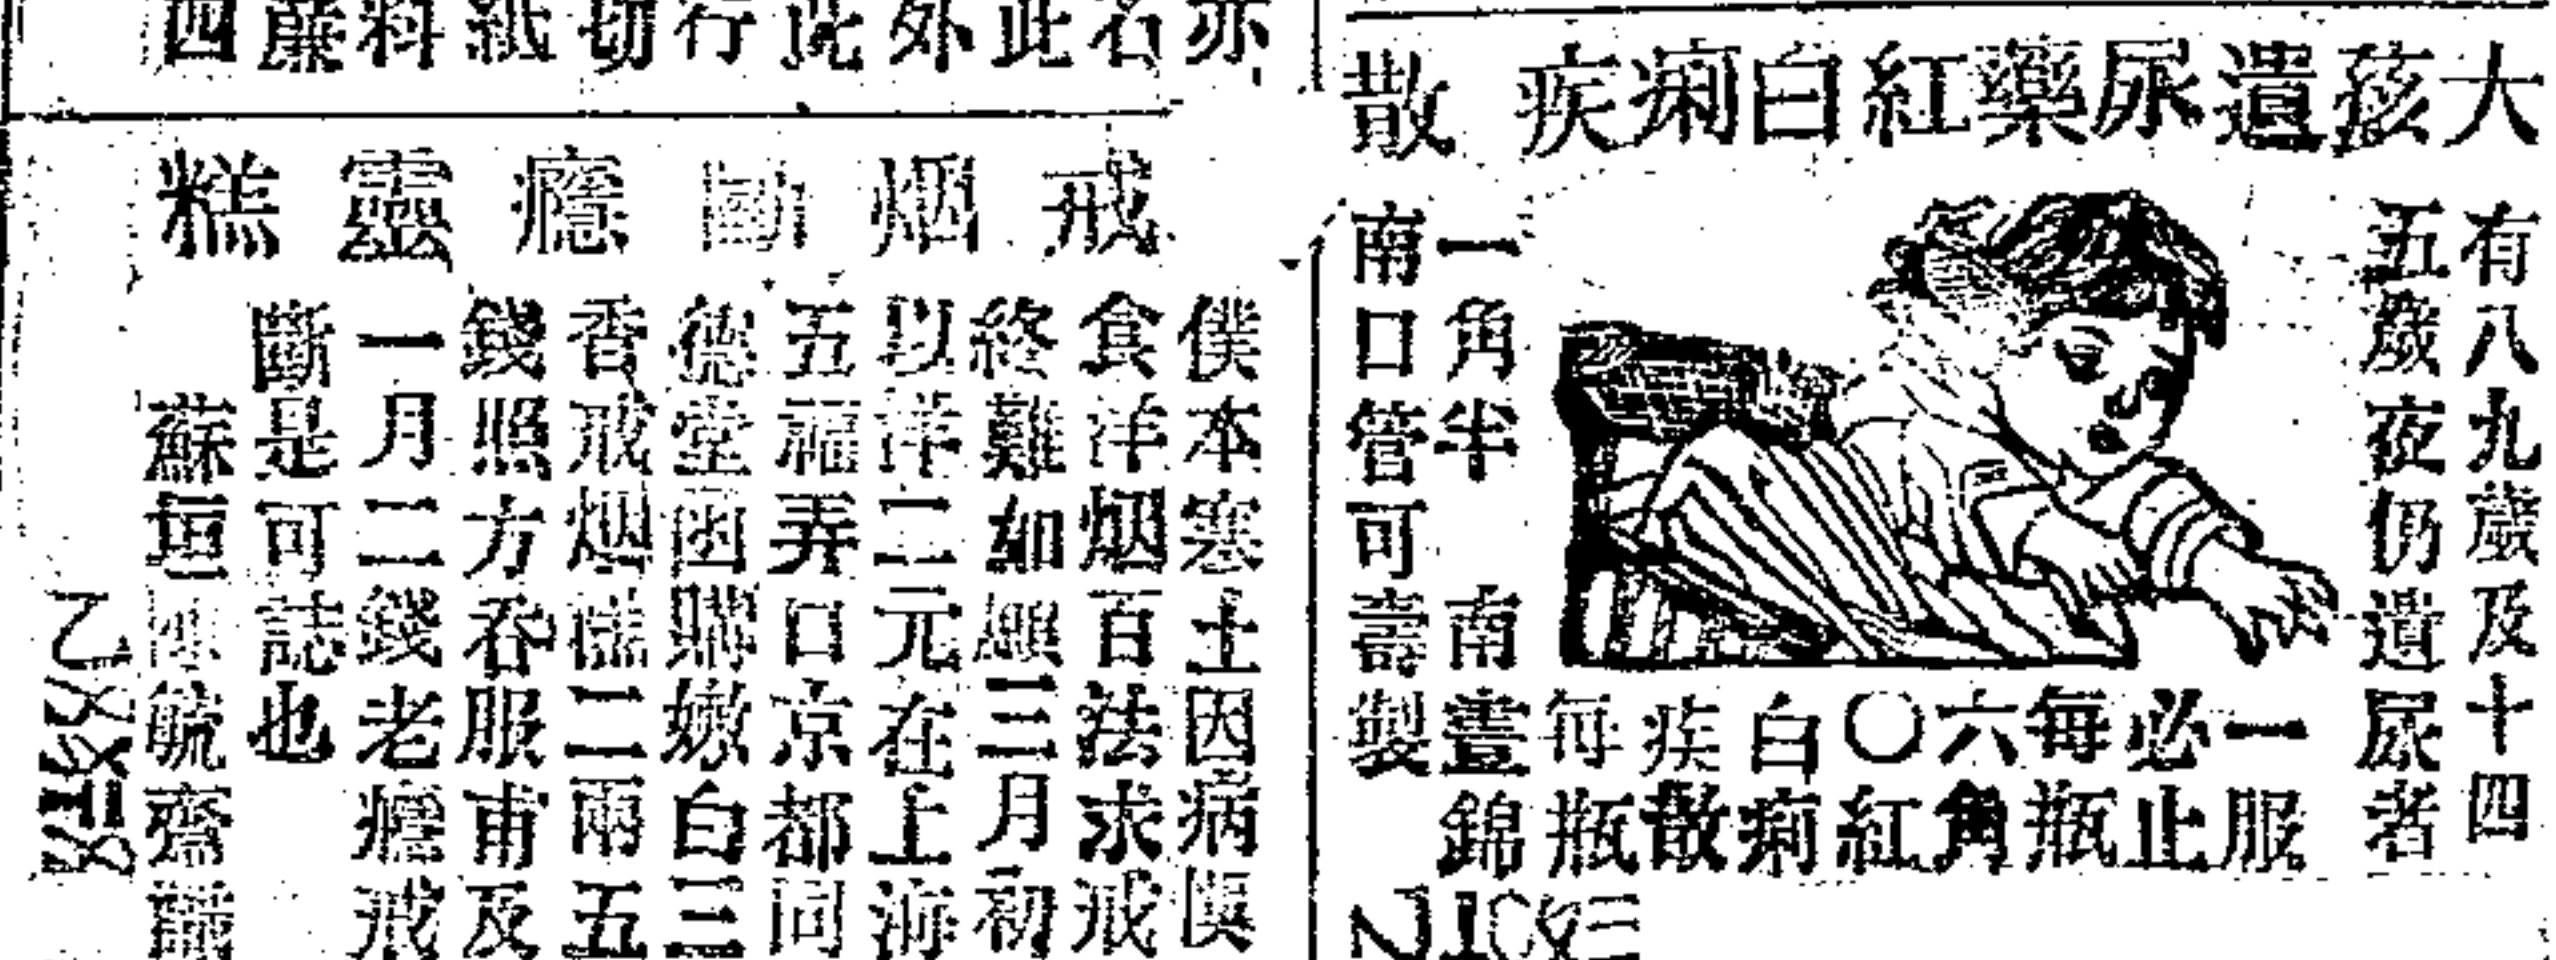 大孩遺尿藥紅白痢疾散
有八九歲及十四
五歲夜仍遺尿者
一服
必止
每瓶
六角
〇紅
白痢
疾散
每瓶
一角半 南晝錦
南口管可壽製
亦
名
此
外
此
行
切
紙
料
簾
四
戒烟斷癮靈糕
僕本寒士因病誤
食洋烟百法求戒
終難如願三月初
以洋二元在上海
五福弄口京都同
德堂函購嫩白三
香戒烟糕二兩五
錢照方吞服甫及
一月二錢老癮戒
斷是可誌也
蘇垣陳毓齋謹